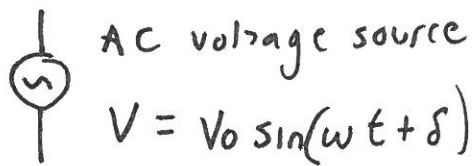 AC voltage source
V = V₀ sin(ωt + δ)